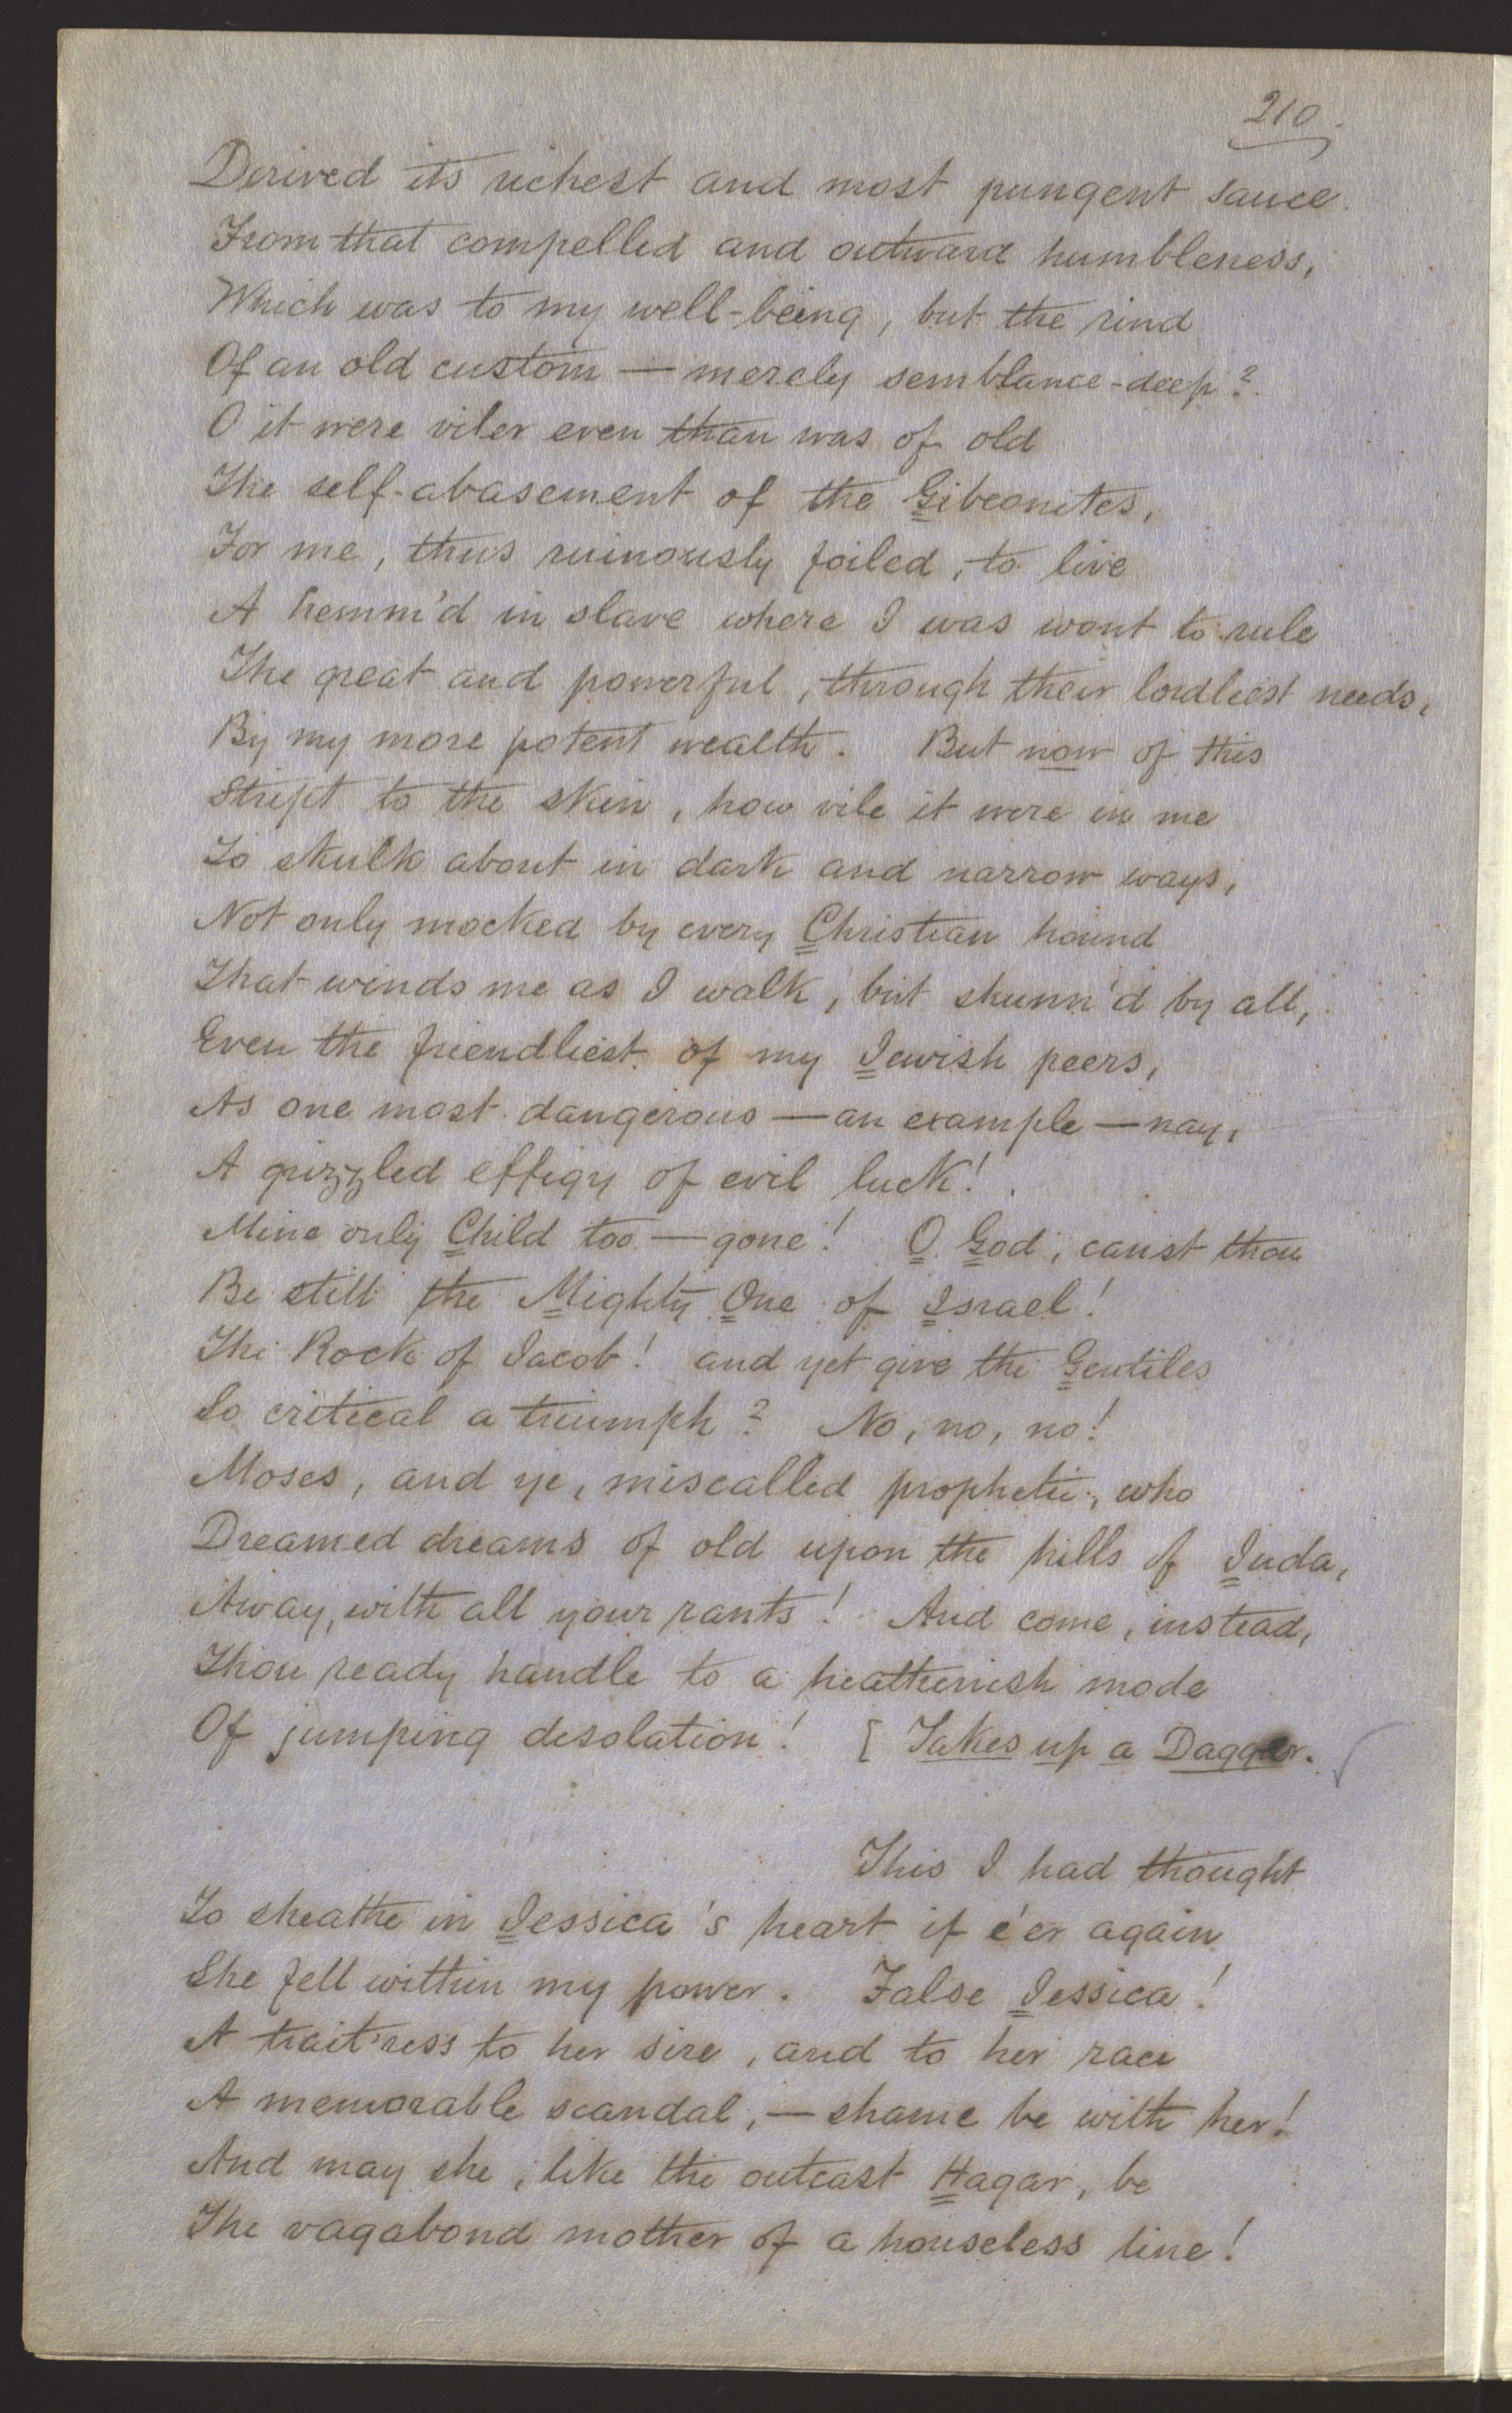 210.
Derived its richest and most pungent sauce
From that compelled and outward humbleness,
Which was to my well-being, but the rind
Of an old custom — merely semblance-deep?
O it were viler even than was of old
The self-abasement of the Gibeonites,
For me, thus ruinously foiled, to live
A hemm'd in slave where I was wont to rule
The great and powerful, through their lordliest needs,
By my more potent wealth. But now of this
Stript to the skin, how vile it were in me
To skulk about in dark and narrow ways,
Not only mocked by every Christian hound
That winds me as I walk, but shunn'd by all,
Even the friendliest of my Jewish peers,
As one most dangerous — an example — nay,
A grizzled effigy of evil luck!
Mine only Child too — gone! O God, canst thou
Be still the Mighty One of Israel!
The Rock of Jacob! and yet give the Gentiles
So critical a triumph? No, no, no!
Moses, and ye, miscalled prophetic, who
Dreamed dreams of old upon the hills of Juda,
Away, with all your rants! And come, instead,
Thou ready handle to a heathenish mode
Of jumping desolation! [ Takes up a Dagger.
This I had thought
To sheathe in Jessica's heart if e'er again
She fell within my power. False Jessica!
A trait'ress to her sire, and to her race
A memorable scandal, — shame be with her!
And may she, like the outcast Hagar, be
The vagabond mother of a houseless line!